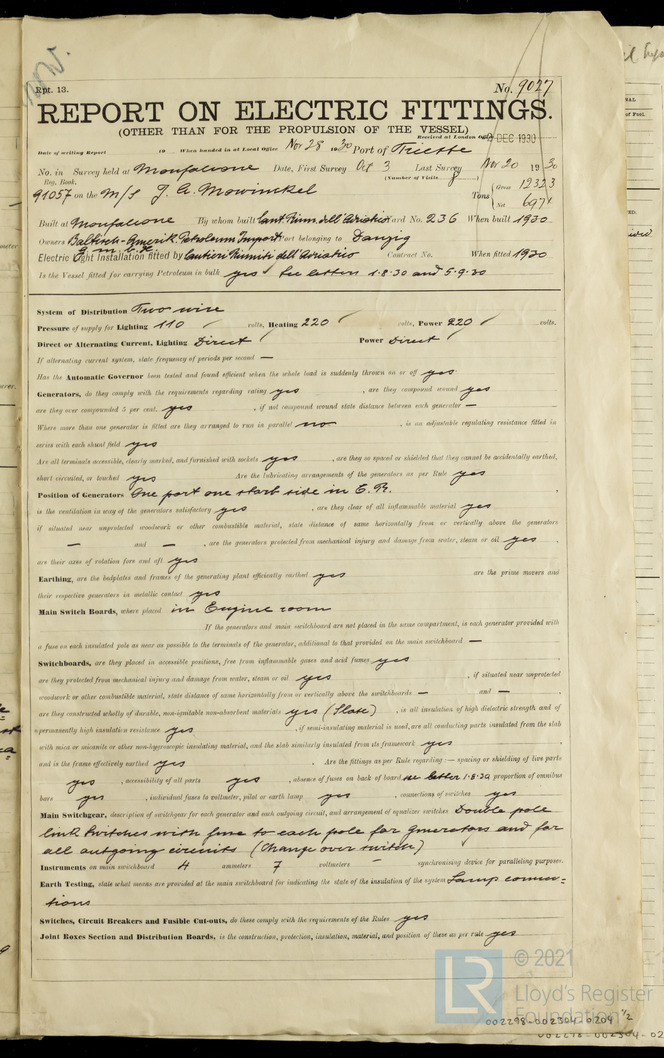 Rpt. 13.
No. 9027
REPORT ON ELECTRIC FITTINGS.
(OTHER THAN FOR THE PROPULSION OF THE VESSEL)
Received at London Office DEC 1930
Date of writing Report 19 When handed in at Local Office Nov 28 1930 Port of Trieste
No. in Survey held at Monfalcone Date, First Survey Oct 3 Last Survey Nov 20 1930
Reg. Book. (Number of Visits
91057 on the M/S J. A. Mowinckel Tons Gross 12323
Net 6971
Built at Monfalcone By whom built Cant. Riun. dell'Adriatico Yard No. 236 When built 1930
Owners Baltisch-Amerik. Petroleum Import G.m.b.H. Port belonging to Danzig
Electric Light Installation fitted by Cantieri Riuniti dell'Adriatico Contract No. When fitted 1930
Is the Vessel fitted for carrying Petroleum in bulk yes See letters 1.8.30 and 5.9.30
System of Distribution Two wire
Pressure of supply for Lighting 110 volts, Heating 220 volts, Power 220 volts.
Direct or Alternating Current, Lighting Direct Power Direct
If alternating current system, state frequency of periods per second —
Has the Automatic Governor been tested and found efficient when the whole load is suddenly thrown on or off yes
Generators, do they comply with the requirements regarding rating yes , are they compound wound yes
are they over compounded 5 per cent. yes , if not compound wound state distance between each generator —
Where more than one generator is fitted are they arranged to run in parallel no , is an adjustable regulating resistance fitted in
series with each shunt field yes
Are all terminals accessible, clearly marked, and furnished with sockets yes , are they so spaced or shielded that they cannot be accidentally earthed,
short circuited, or touched yes Are the lubricating arrangements of the generators as per Rule yes
Position of Generators One port one starb side in E.R.
is the ventilation in way of the generators satisfactory yes , are they clear of all inflammable material yes
if situated near unprotected woodwork or other combustible material, state distance of same horizontally from or vertically above the generators
— and — , are the generators protected from mechanical injury and damage from water, steam or oil yes ,
are their axes of rotation fore and aft yes
Earthing, are the bedplates and frames of the generating plant efficiently earthed yes are the prime movers and
their respective generators in metallic contact yes
Main Switch Boards, where placed in Engine room
If the generators and main switchboard are not placed in the same compartment, is each generator provided with
a fuse on each insulated pole as near as possible to the terminals of the generator, additional to that provided on the main switchboard —
Switchboards, are they placed in accessible positions, free from inflammable gases and acid fumes yes
are they protected from mechanical injury and damage from water, steam or oil yes , if situated near unprotected
woodwork or other combustible material, state distance of same horizontally from or vertically above the switchboards — and — ,
are they constructed wholly of durable, non-ignitable non-absorbent materials yes (Slate) , is all insulation of high dielectric strength and of
permanently high insulation resistance yes , if semi-insulating material is used, are all conducting parts insulated from the slab
with mica or micanite or other non-hygroscopic insulating material, and the slab similarly insulated from its framework yes ,
and is the frame effectively earthed yes . Are the fittings as per Rule regarding:— spacing or shielding of live parts
yes , accessibility of all parts yes , absence of fuses on back of board see letter 1.8.30 proportion of omnibus
bars yes , individual fuses to voltmeter, pilot or earth lamp yes , connections of switches yes
Main Switchgear, description of switchgear for each generator and each outgoing circuit, and arrangement of equalizer switches Double pole
link switches with fuse to each pole for generators and for
all outgoing circuits (Change over switch)
Instruments on main switchboard 4 ammeters 7 voltmeters — synchronising device for paralleling purposes.
Earth Testing, state what means are provided at the main switchboard for indicating the state of the insulation of the system Lamp connec=
tions
Switches, Circuit Breakers and Fusible Cut-outs, do these comply with the requirements of the Rules yes
Joint Boxes Section and Distribution Boards, is the construction, protection, insulation, material, and position of these as per rule yes
© 2021
LR
Lloyd's Register
Foundation
002298-002304-0204 1/2